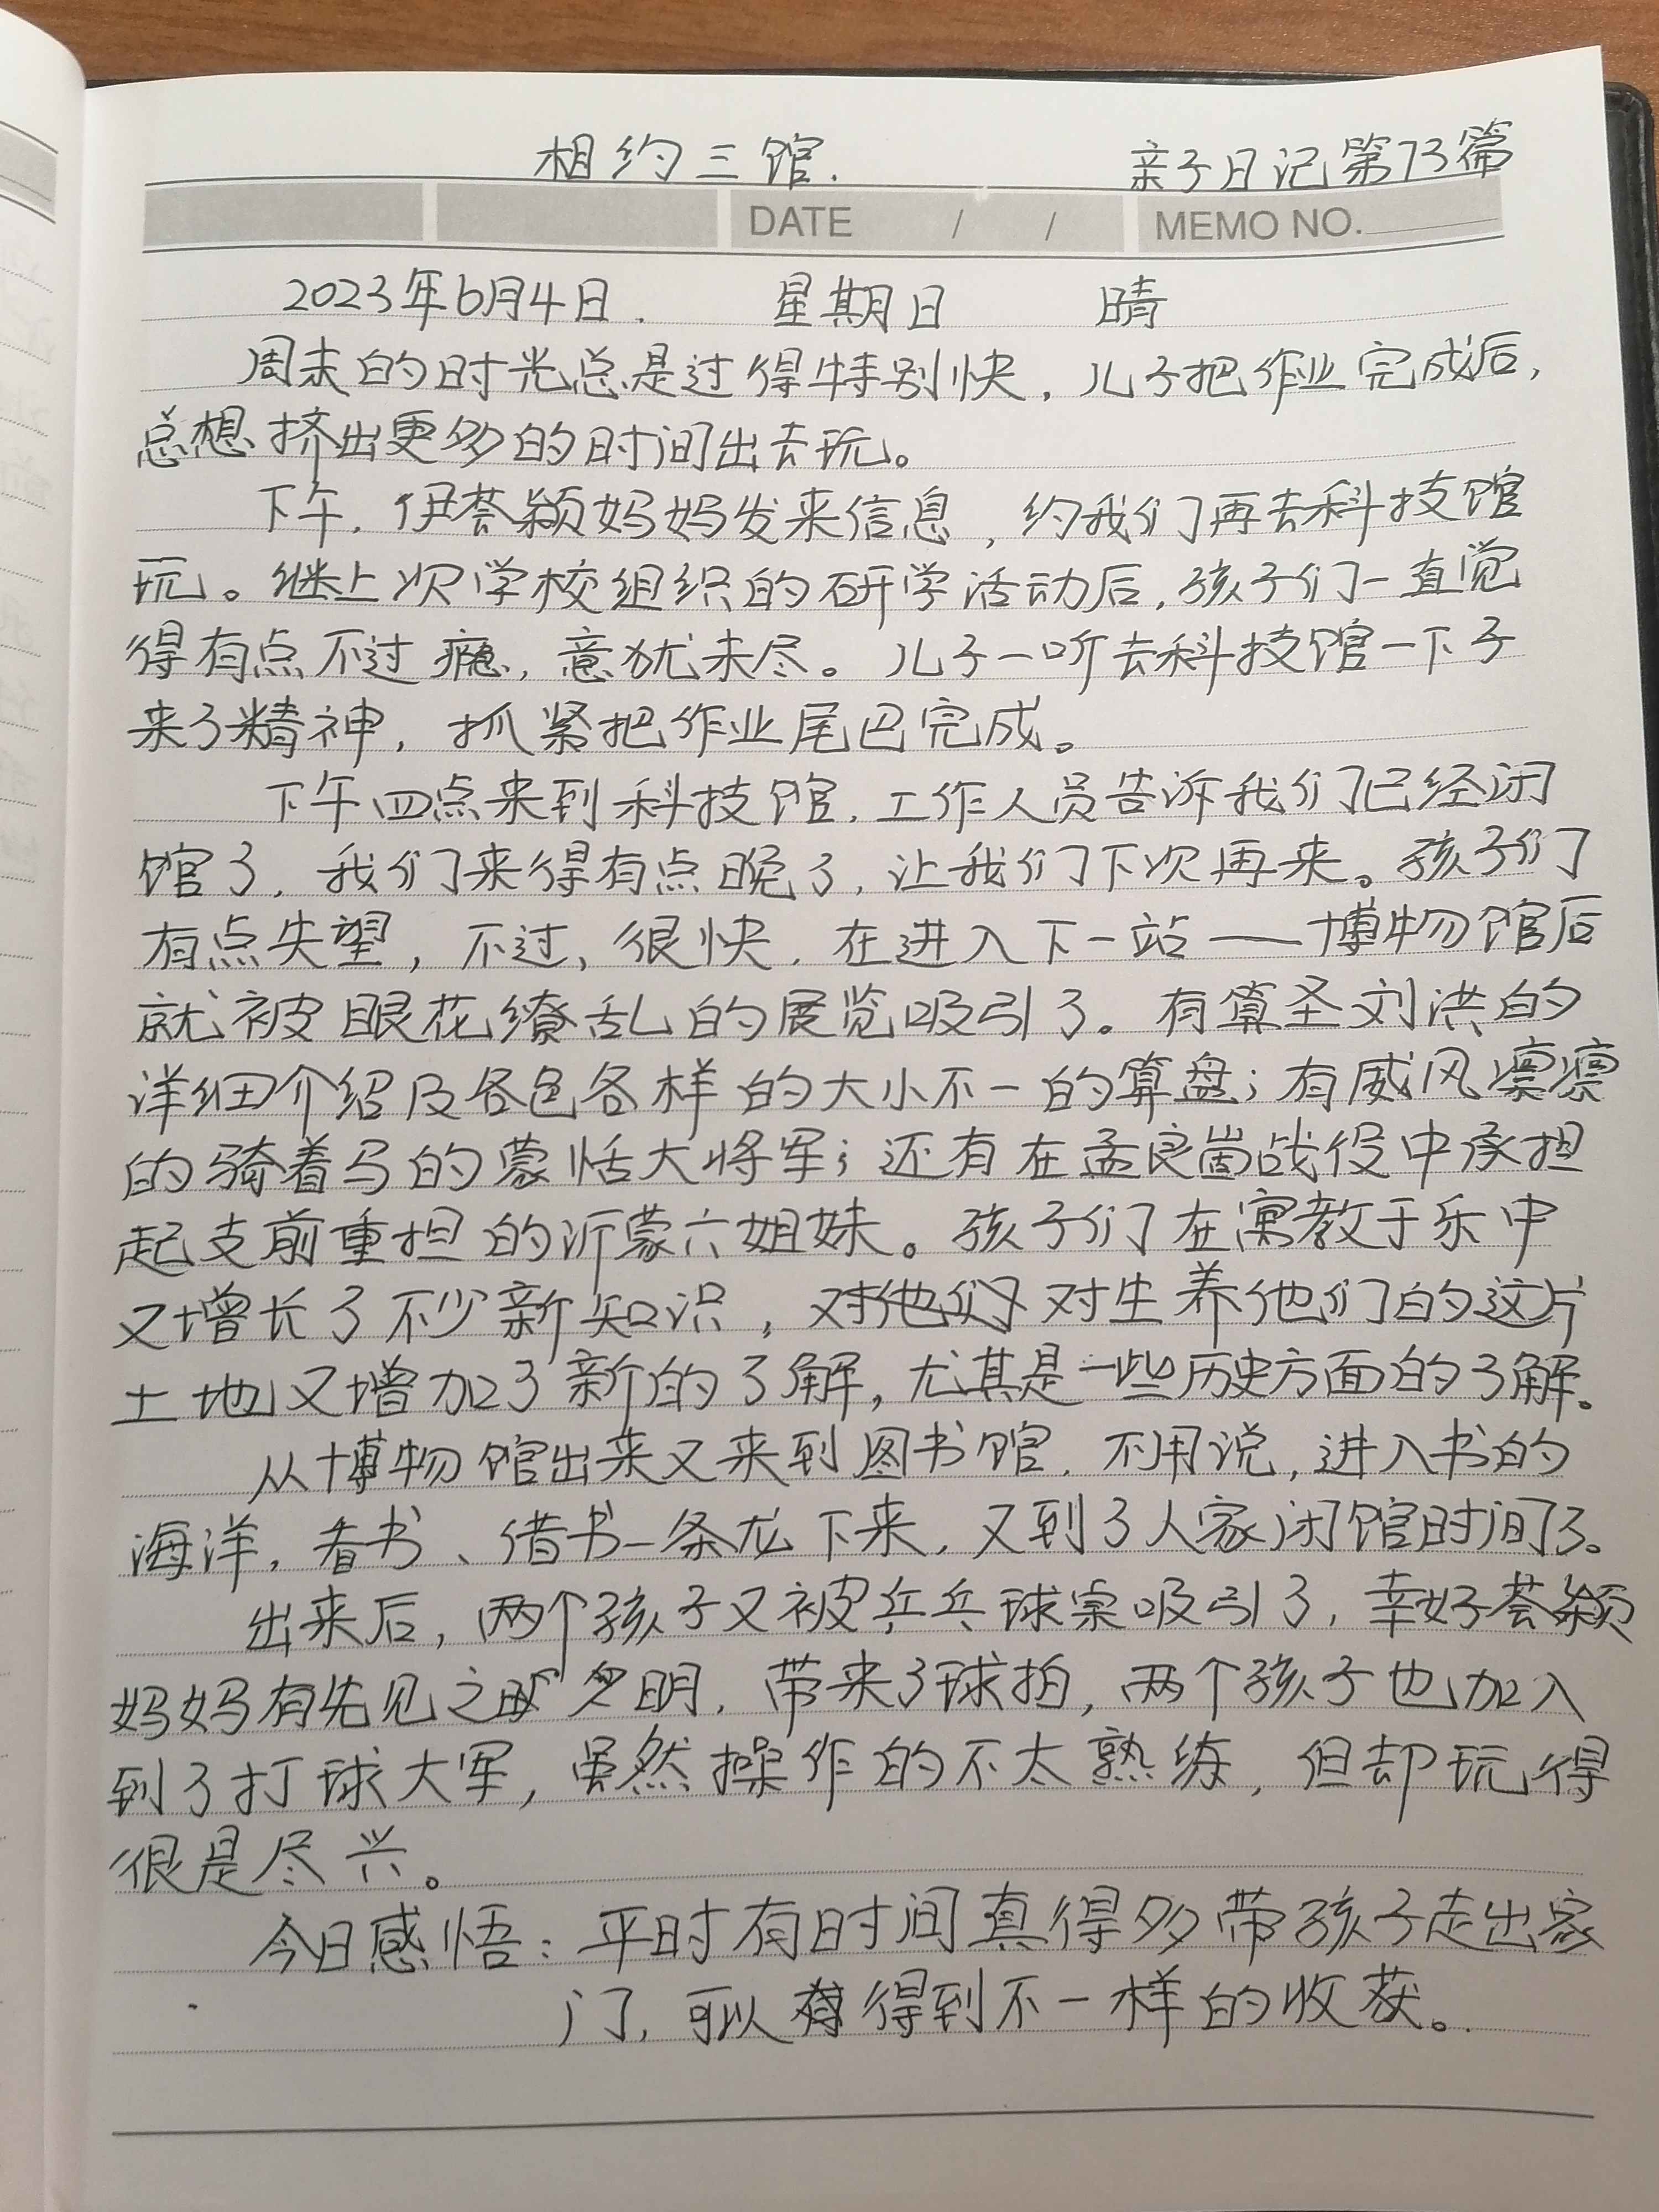 相约三馆.
亲子日记第73篇
DATE / / MEMO NO.
2023年6月4日. 星期日 晴
周末的时光总是过得特别快，儿子把作业完成后，
总想挤出更多的时间出去玩。
下午，伊荟颖妈妈发来信息，约我们再去科技馆
玩。继上次学校组织的研学活动后，孩子们一直觉
得有点不过瘾，意犹未尽。儿子一听去科技馆一下子
来了精神，抓紧把作业尾巴完成。
下午四点来到科技馆，工作人员告诉我们已经闭
馆了，我们来得有点晚了，让我们下次再来。孩子们
有点失望，不过，很快，在进入下一站——博物馆后
就被眼花缭乱的展览吸引了。有算圣刘洪的
详细介绍及各色各样的大小不一的算盘；有威风凛凛
的骑着马的蒙恬大将军；还有在孟良崮战役中承担
起支前重担的沂蒙六姐妹。孩子们在寓教于乐中
又增长了不少新知识，对生养他们的这片
土地又增加了新的了解，尤其是一些历史方面的了解。
从博物馆出来又来到图书馆，不用说，进入书的
海洋，看书、借书一条龙下来，又到了人家闭馆时间了。
出来后，两个孩子又被乒乓球案吸引了，幸好荟颖
妈妈有先见之明，带来了球拍，两个孩子也加入
到了打球大军，虽然操作的不太熟练，但却玩得
很是尽兴。
今日感悟：平时有时间真得多带孩子走出家
门，可以得到不一样的收获。